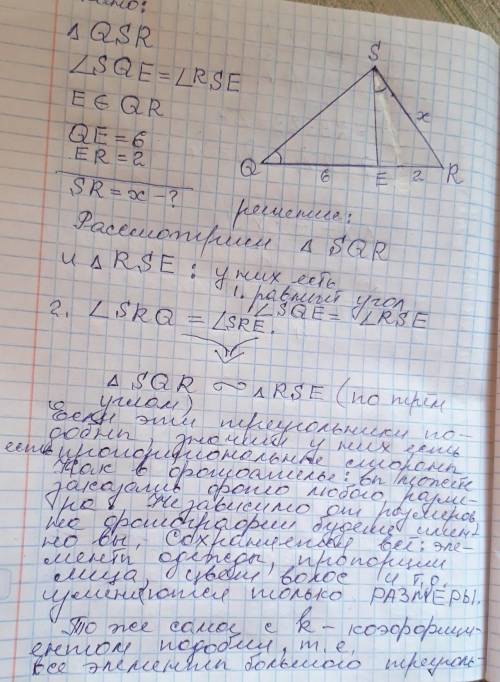 △ QSR
∠SQE = ∠RSE
E ∈ QR
QE = 6
ER = 2
SR = x - ?
S
x
Q
6
E
2
R
решение:
Рассмотрим △ SQR
и △ RSE : у них есть
1. равный угол
∠SQE = ∠RSE
2. ∠SRQ = ∠SRE.
△ SQR ∾ △ RSE (по трём
углам)
Если эти треугольники по-
добны, значит у них есть
есть пропорциональные стороны
Как в фотоателье: вы можете
заказать фото любого разме-
ра. Независимо от размеров
на фотографии будете имен-
но вы. Сохраняется всё: эле-
менты одежды, пропорции
лица, цвет волос и т.д.
изменяются только РАЗМЕРЫ.
То же самое с k - коэффици-
ентом подобия, т.е.
все элементы большого треуголь-